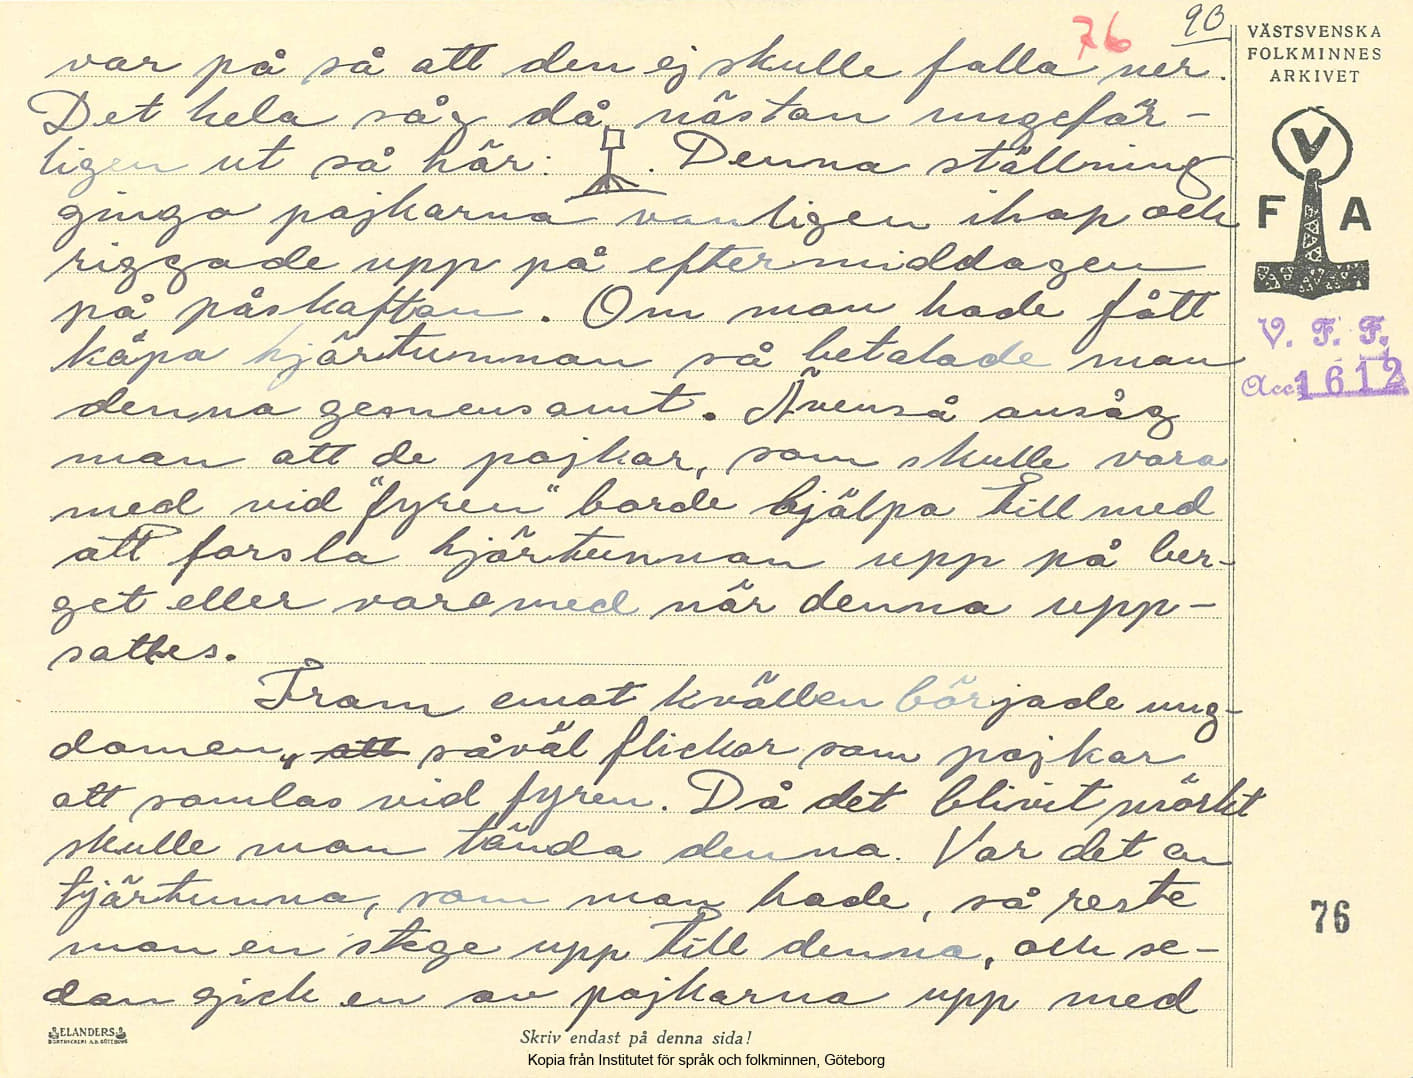 76
90
VÄSTSVENSKA
FOLKMINNES
ARKIVET
V
F A
V. F. F.
Acc. 1612
var på så att den ej skulle falla ner.
Det hela såg då nästan ungefär-
ligen ut så här: . Denna ställning
gingo pojkarna vanligen ihop och
riggade upp på eftermiddagen
på påskaftan. Om man hade fått
kåpa hjärtunnan så betalade man
denna gesmensamt. Ävenså ansåg
man att de pojkar, som skulle vara
med vid "fyren" borde hjälpa till med
att forsla hjärtunnan upp på ber-
get eller vara med när denna upp-
sattes.
Fram emot kvällen började ung-
domen, att såväl flickor som pojkar
att samlas vid fyren. Då det blivit mörkt
skulle man tända denna. Var det en
tjärtunna, som man hade, så reste
man en stege upp till denna, och se-
dan gick en av pojkarna upp med
76
ELANDERS
BOKTRYCKERI A.B. GÖTEBORG
Skriv endast på denna sida!
Kopia från Institutet för språk och folkminnen, Göteborg